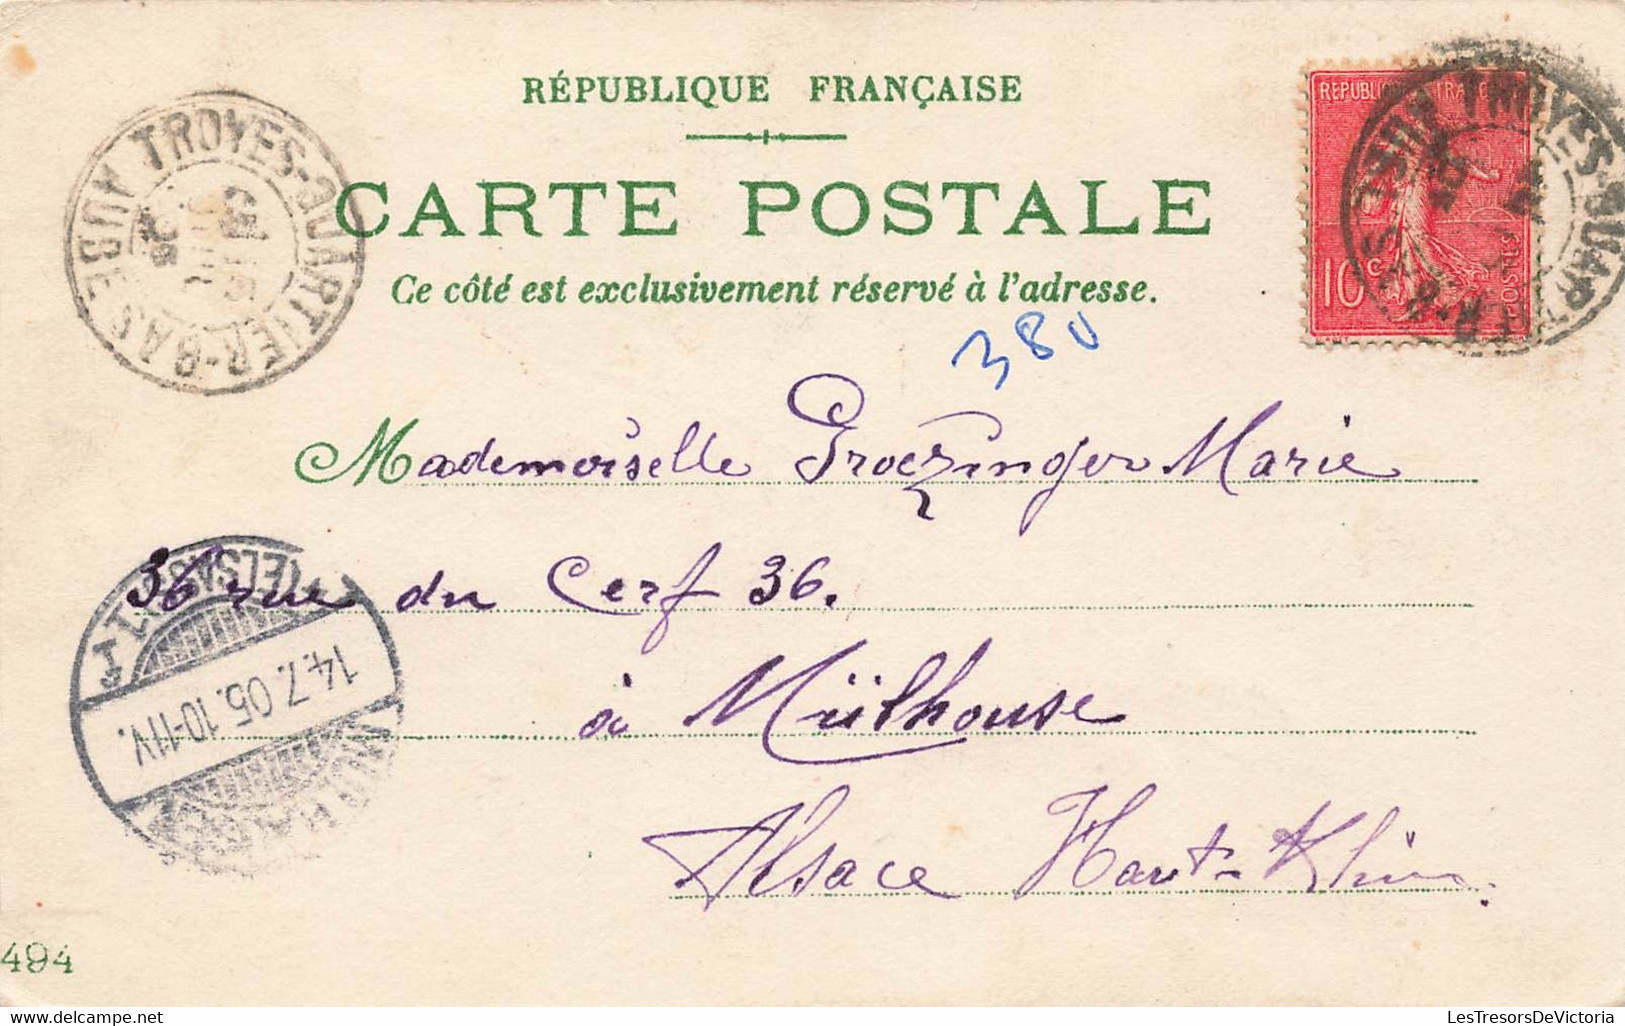 RÉPUBLIQUE FRANÇAISE
CARTE POSTALE
Ce côté est exclusivement réservé à l'adresse.
TROYES-QUARTIER-BAS AUBE
REPUBLIQUE FRANC
10c
POSTES
TROYES-QUARTIER-BAS AUBE
380
Mademoiselle Groezinger Marie
36 rue du Cerf 36.
à Mülhouse
Alsace Haut-Rhin.
(ELSASS)
14.7.05.10-11V.
494
delcampe.net
LesTresorsDeVictoria